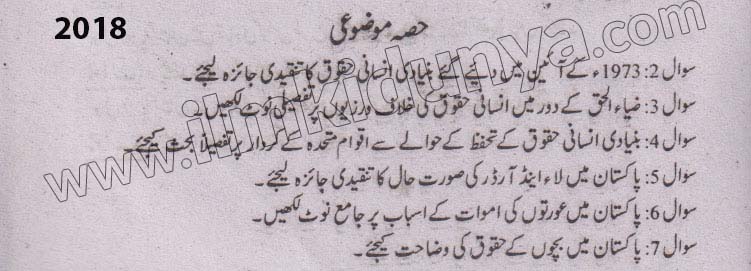 2018
حصہ موضوعی
سوال 2: 1973ء کے آئین میں دیئے گئے بنیادی انسانی حقوق کا تنقیدی جائزہ لیجئے۔
سوال 3: ضیاء الحق کے دور میں انسانی حقوق کی خلاف ورزیوں پر تفصیلی نوٹ لکھیں۔
سوال 4: بنیادی انسانی حقوق کے تحفظ کے حوالے سے اقوام متحدہ کے کردار پر تفصیلاً بحث کیجئے۔
سوال 5: پاکستان میں لاء اینڈ آرڈر کی صورت حال کا تنقیدی جائزہ لیجئے۔
سوال 6: پاکستان میں عورتوں کی اموات کے اسباب پر جامع نوٹ لکھیں۔
سوال 7: پاکستان میں بچوں کے حقوق کی وضاحت کیجئے۔
www.ilmkidunya.com